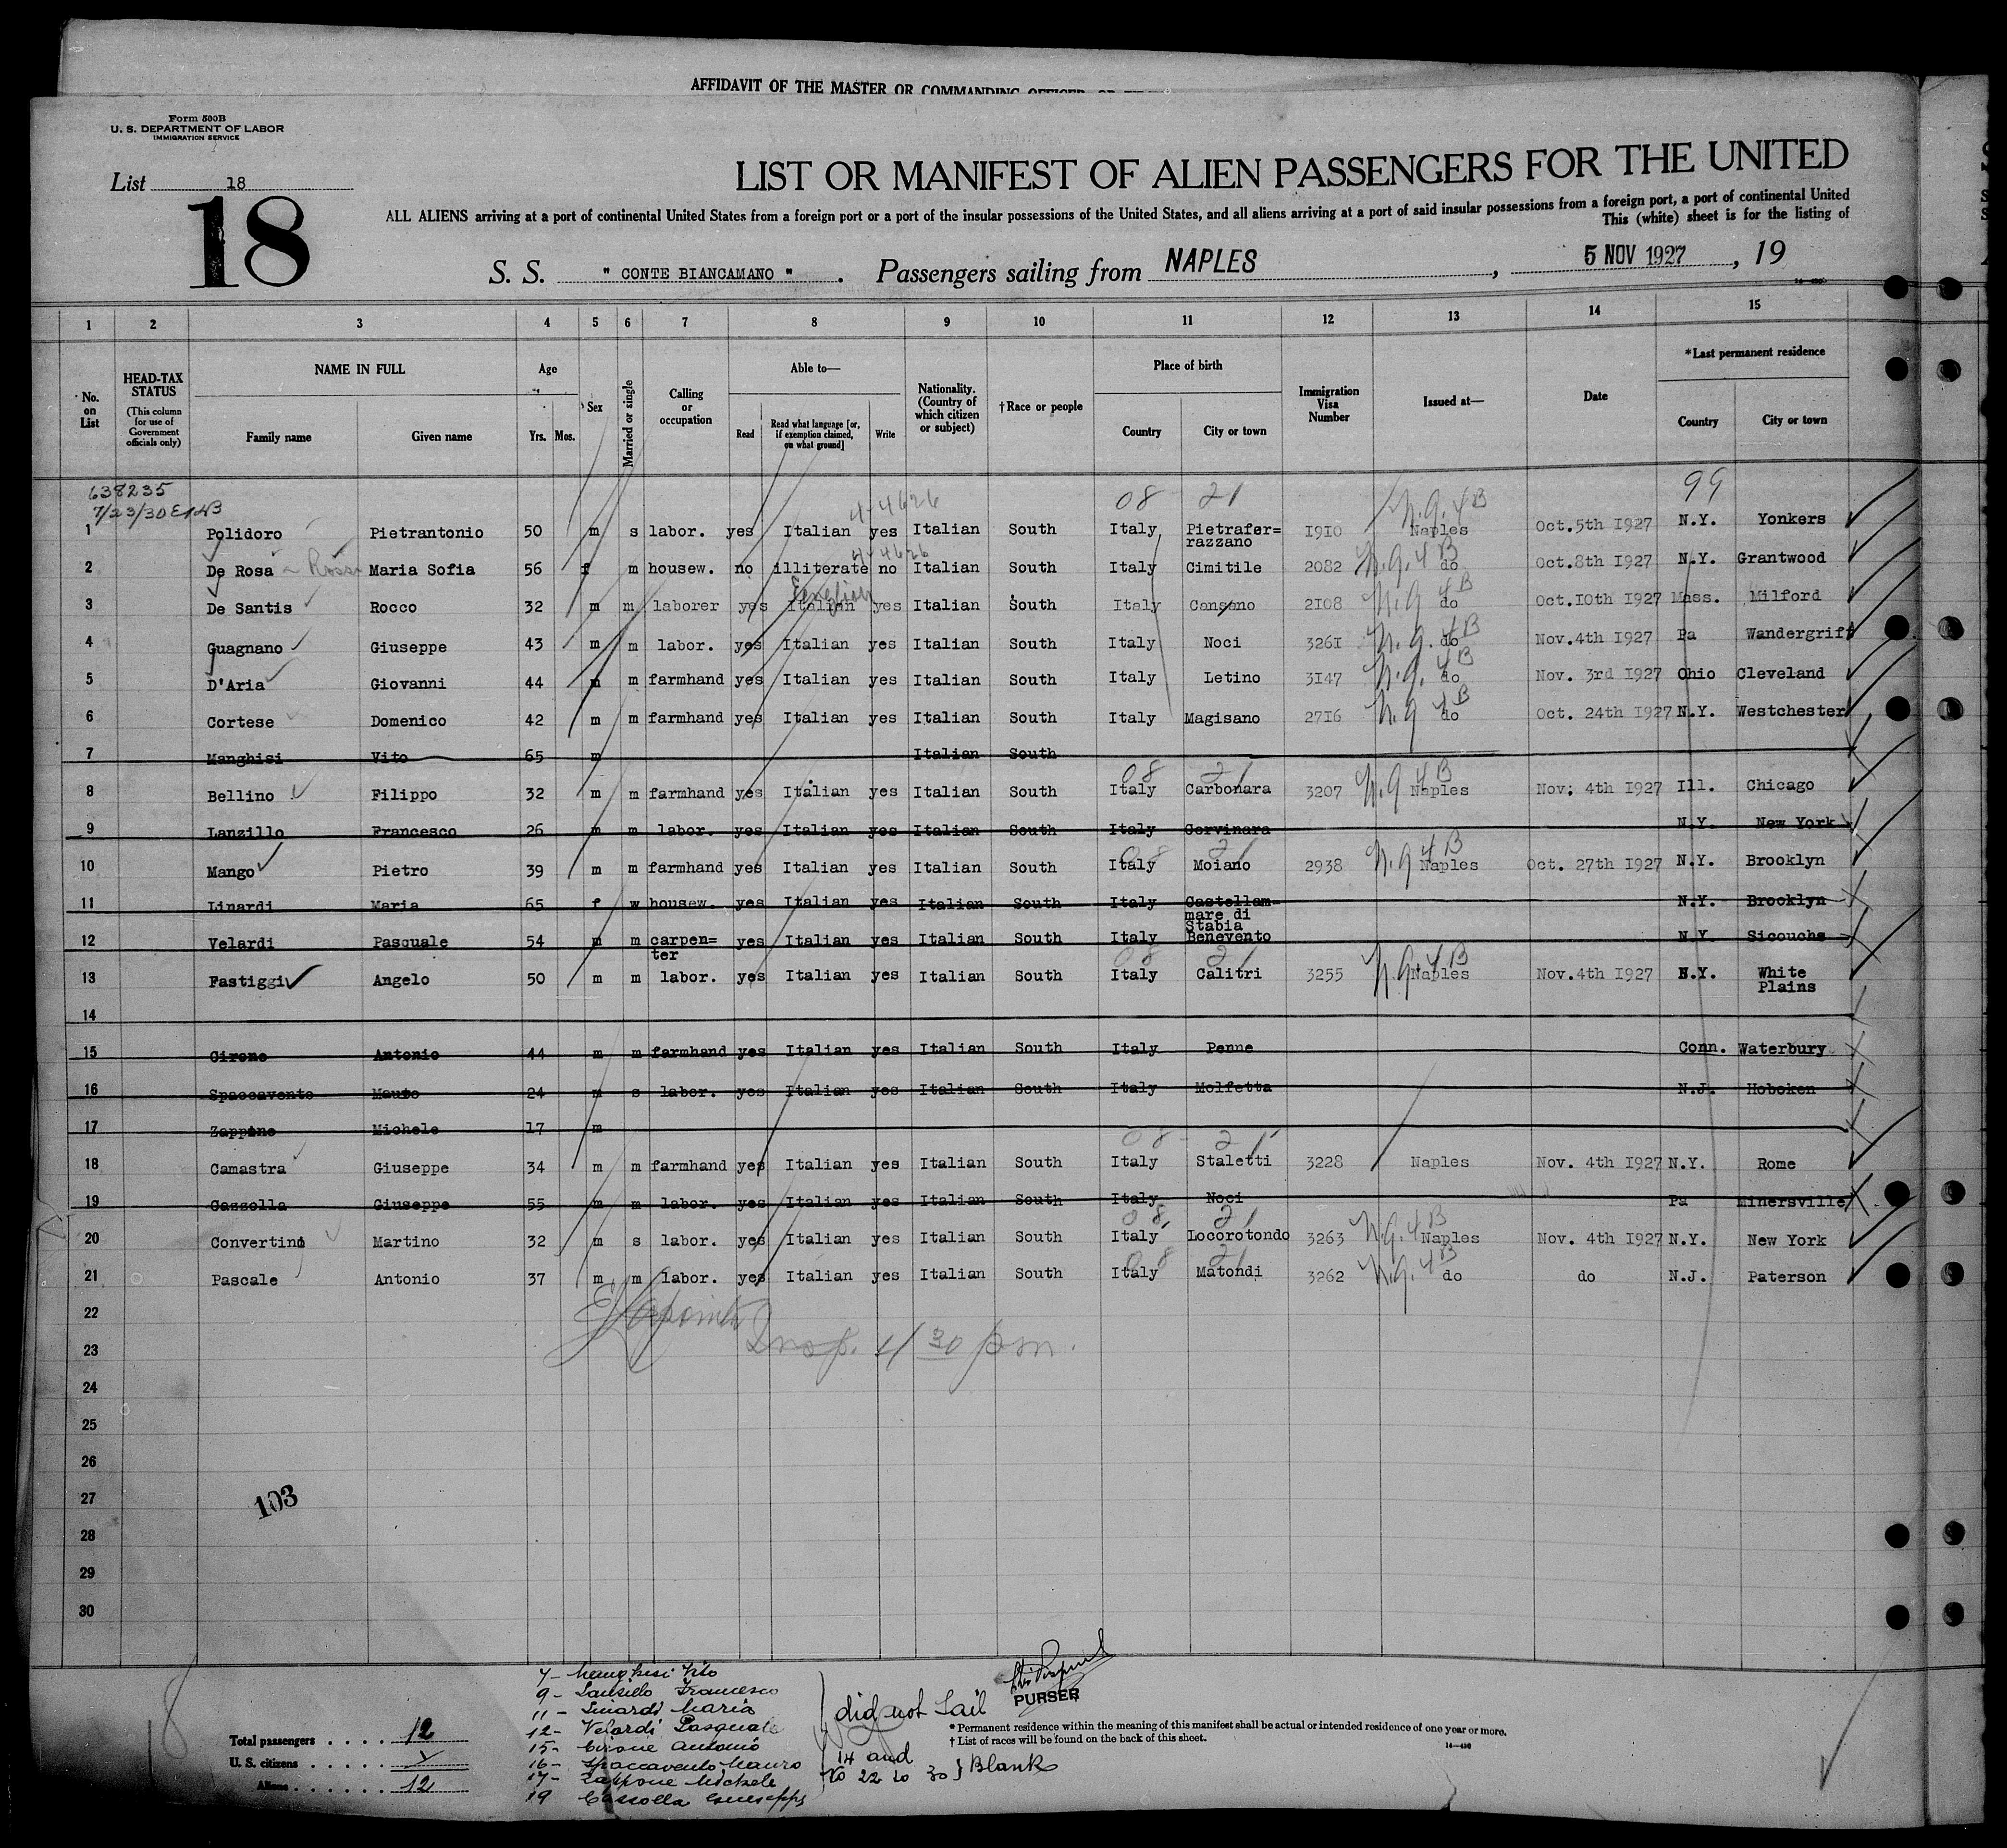 AFFIDAVIT OF THE MASTER OR COMMANDING OFFICER
Form 500B
U. S. DEPARTMENT OF LABOR
IMMIGRATION SERVICE
List 18
18
LIST OR MANIFEST OF ALIEN PASSENGERS FOR THE UNITED
ALL ALIENS arriving at a port of continental United States from a foreign port or a port of the insular possessions of the United States, and all aliens arriving at a port of said insular possessions from a foreign port, a port of continental United
This (white) sheet is for the listing of
S. S. " CONTE BIANCAMANO " . Passengers sailing from NAPLES , 5 NOV 1927 , 19
1 2 3 4 5 6 7 8 9 10 11 12 13 14 15
No. on List
HEAD-TAX STATUS
(This column for use of Government officials only)
NAME IN FULL
Family name Given name
Age
Yrs. Mos.
Sex
Married or single
Calling or occupation
Able to—
Read
Read what language [or, if exemption claimed, on what ground]
Write
Nationality. (Country of which citizen or subject)
†Race or people
Place of birth
Country City or town
Immigration Visa Number
Issued at—
Date
*Last permanent residence
Country City or town
638235 08 21 99
7/23/30 4-4626 N.g. 4B
1 Polidoro Pietrantonio 50 m s labor. yes Italian yes Italian South Italy Pietrafer= razzano 1910 Naples Oct.5th 1927 N.Y. Yonkers
4-4626
2 De Rosa - Rossi Maria Sofia 56 f m housew. no illiterate no Italian South Italy Cimitile 2082 N.g. 4B do Oct.8th 1927 N.Y. Grantwood
English
3 De Santis Rocco 32 m m laborer yes Italian yes Italian South Italy Cansano 2108 N.g 4B do Oct.10th 1927 Mass. Milford
4 Guagnano Giuseppe 43 m m labor. yes Italian yes Italian South Italy Noci 3261 N.g. 4B do Nov.4th 1927 Pa Wandergrift
5 D'Aria Giovanni 44 m m farmhand yes Italian yes Italian South Italy Letino 3147 N.g. 4B do Nov. 3rd 1927 Ohio Cleveland
6 Cortese Domenico 42 m m farmhand yes Italian yes Italian South Italy Magisano 2716 N.g 4B do Oct. 24th 1927 N.Y. Westchester
7 Manghisi Vito 65 m Italian South
08 21
8 Bellino Filippo 32 m m farmhand yes Italian yes Italian South Italy Carbonara 3207 N.g 4B Naples Nov; 4th 1927 Ill. Chicago
9 Lanzillo Francesco 26 m m labor. yes Italian yes Italian South Italy Cervinara N.Y. New York
08 21
10 Mango Pietro 39 m m farmhand yes Italian yes Italian South Italy Moiano 2938 N.g 4B Naples Oct. 27th 1927 N.Y. Brooklyn
11 Linardi Maria 65 f w housew. yes Italian yes Italian South Italy Castellam= mare di Stabia N.Y. Brooklyn
12 Velardi Pasquale 54 m m carpen= ter yes Italian yes Italian South Italy Benevento N.Y. Sicouchs
08 21
13 Fastiggi Angelo 50 m m labor. yes Italian yes Italian South Italy Calitri 3255 N.g. 4B Naples Nov.4th 1927 N.Y. White Plains
14
15 Cirone Antonio 44 m m farmhand yes Italian yes Italian South Italy Penne Conn. Waterbury
16 Spaccavento Mauro 24 m s labor. yes Italian yes Italian South Italy Molfetta N.J. Hoboken
17 Zappone Michele 17 m
08 - 21
18 Camastra Giuseppe 34 m m farmhand yes Italian yes Italian South Italy Staletti 3228 Naples Nov. 4th 1927 N.Y. Rome
19 Cazzolla Giuseppe 55 m m labor. yes Italian yes Italian South Italy Noci Pa Minersville
08 21
20 Convertino Martino 32 m s labor. yes Italian yes Italian South Italy Locorotondo 3263 N.g. 4B Naples Nov. 4th 1927 N.Y. New York
08 21
21 Pascale Antonio 37 m m labor. yes Italian yes Italian South Italy Matondi 3262 N.g. 4B do do N.J. Paterson
22
23 Insp. 4 30 pm.
24
25
26
27
103
28
29
30
Total passengers . . . . 12
U. S. citizens . . . . .
Aliens . . . . . . 12
7 - Manghisi Vito
9 - Lanzillo Francesco
11 - Linardi Maria
12 - Velardi Pasquale
15 - Cirone Antonio
16 - Spaccavento Mauro
17 - Zappone Michele
19 Cassolla Giuseppe
did not sail
14 and
No 22 to 30 } Blank
PURSER
* Permanent residence within the meaning of this manifest shall be actual or intended residence of one year or more.
† List of races will be found on the back of this sheet.
14—430